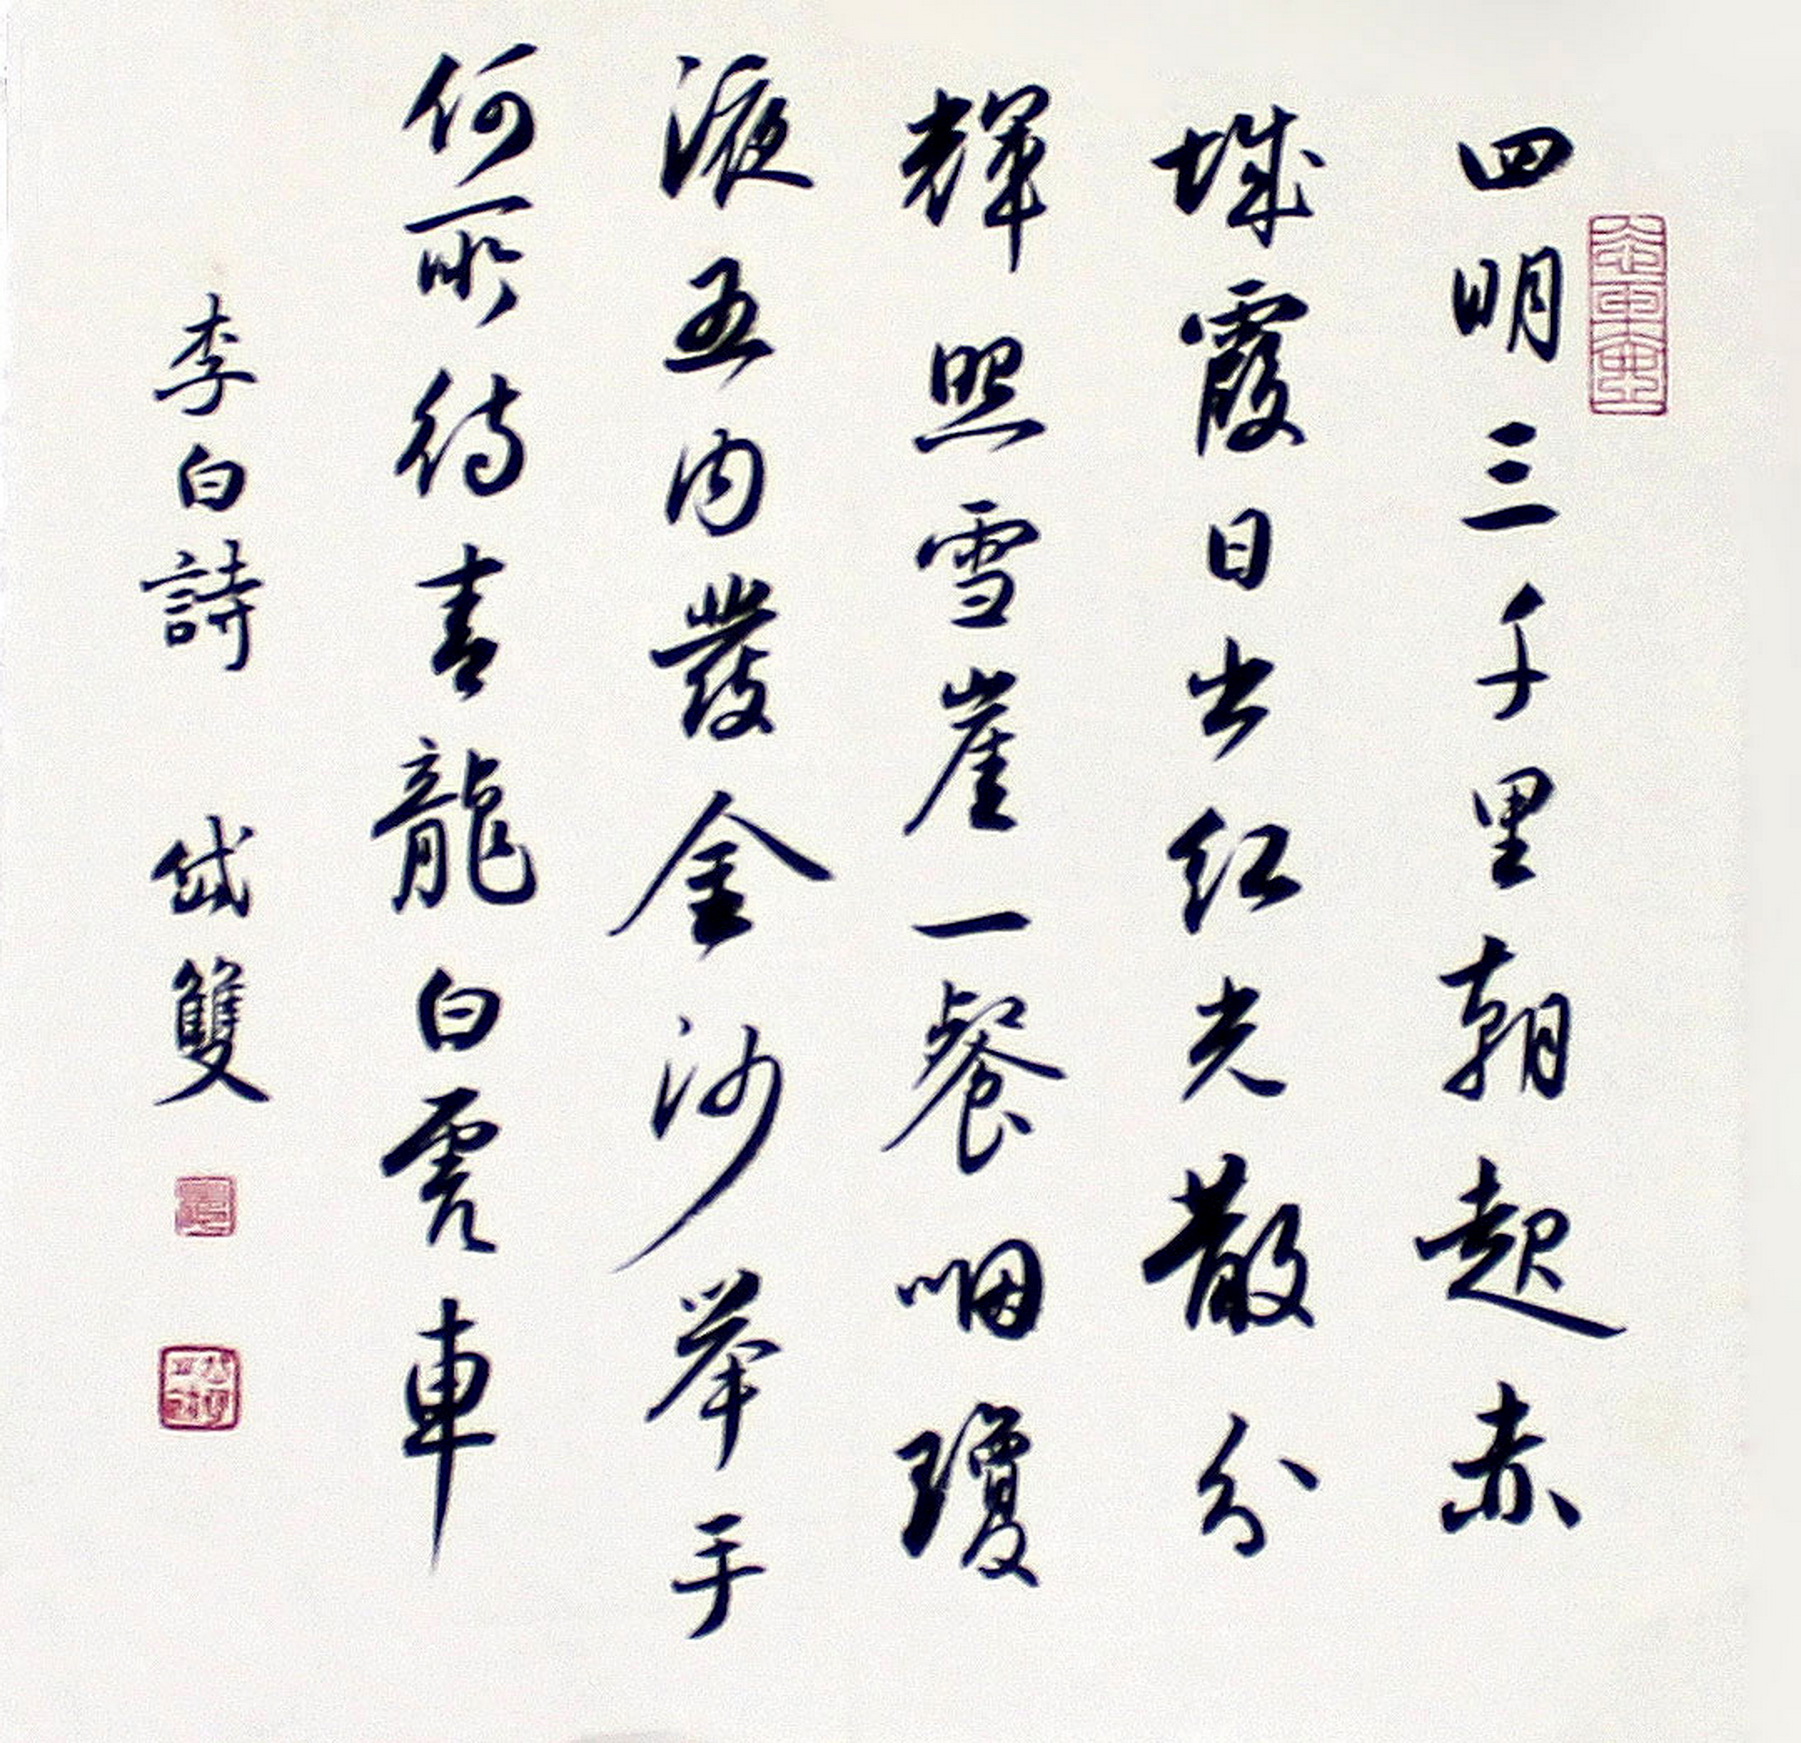 四明三千里朝起赤
城霞日出紅光散分
輝照雪崖一餐咽瓊
液五内發金沙举手
何所待青龍白雲車
李白詩 岱雙